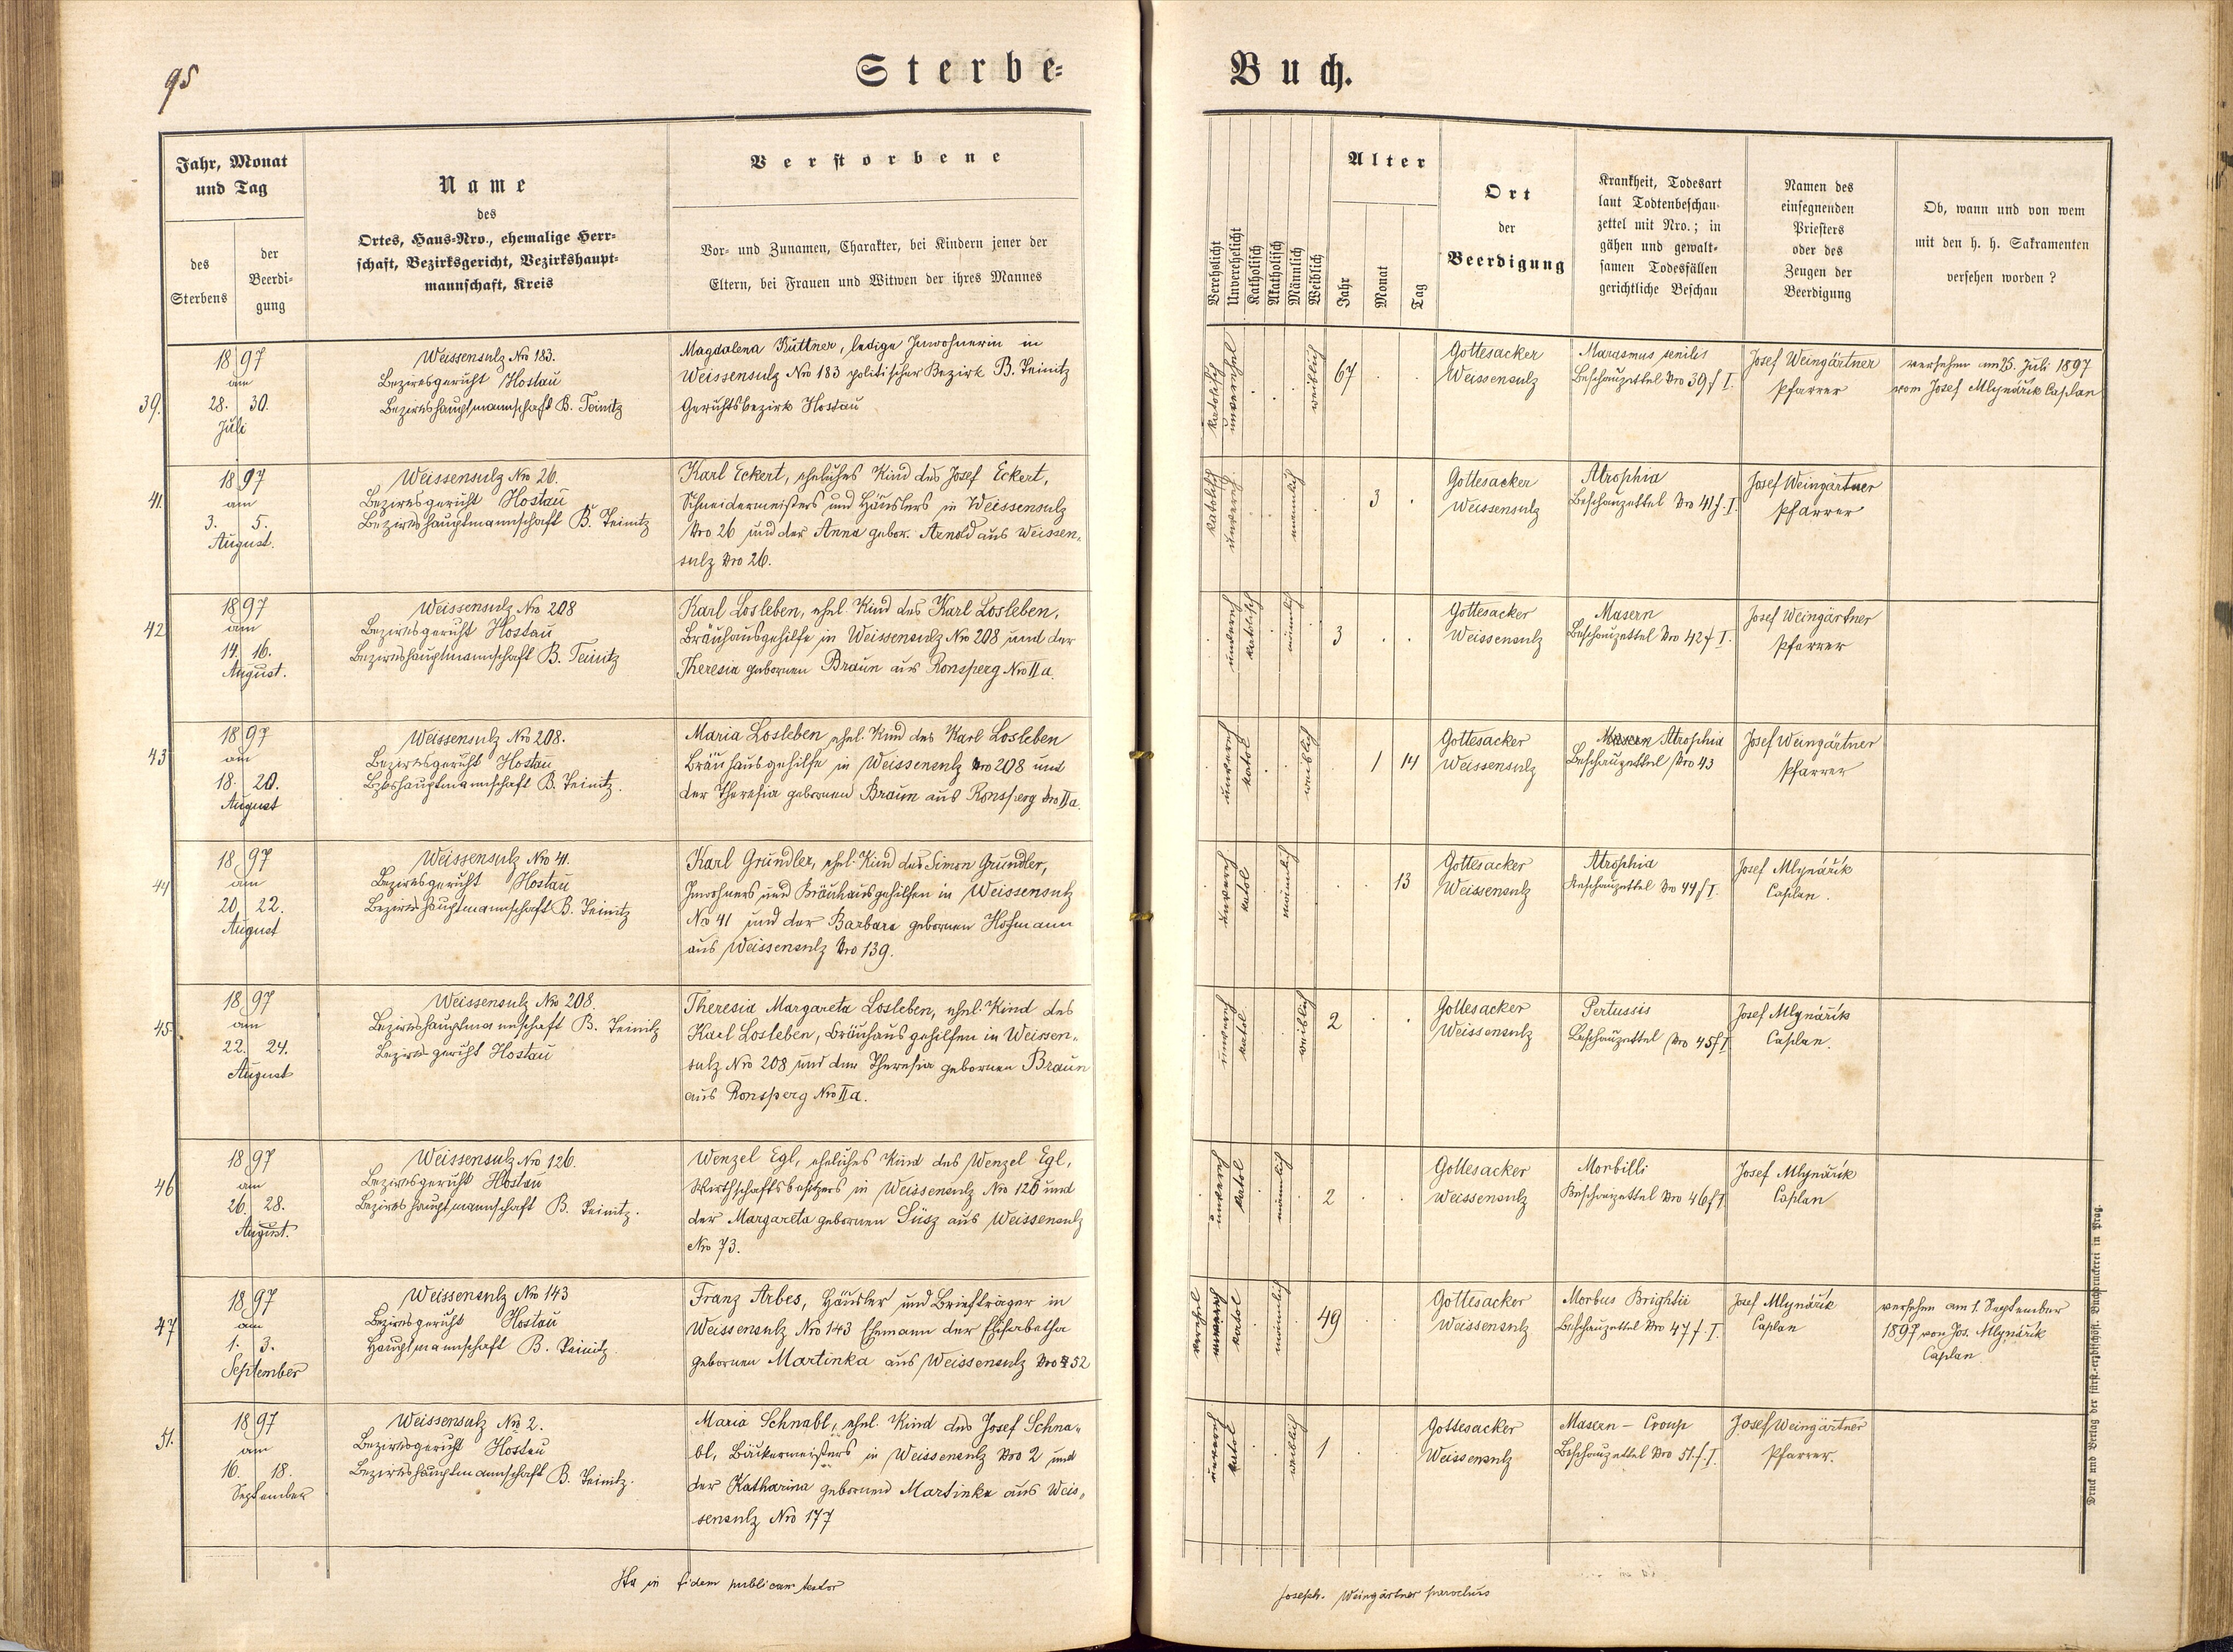 95
Sterbe-
Buch.
Jahr, Monat
und Tag
des
Sterbens
der
Beerdi-
gung
Name
des
Ortes, Haus-Nro., ehemalige Herr-
schaft, Bezirksgericht, Bezirkshaupt-
mannschaft, Kreis
Verstorbene
Vor- und Zunamen, Charakter, bei Kindern jener der
Eltern, bei Frauen und Witwen der ihres Mannes
Verehelicht
Unverehelicht
Katholisch
Akatholisch
Männlich
Weiblich
Alter
Jahr
Monat
Tag
Ort
der
Beerdigung
Krankheit, Todesart
laut Todtenbeschau-
zettel mit Nro.; in
gähen und gewalt-
samen Todesfällen
gerichtliche Beschau
Namen des
einsegnenden
Priesters
oder des
Zeugen der
Beerdigung
Ob, wann und von wem
mit den h. h. Sakramenten
versehen worden?
39.
1897
am
28. 30.
Juli
Weissensulz Nro 183.
Bezirksgericht Hostau
Bezirkshauptmannschaft B. Teinitz
Magdalena Küttner, ledige Inwohnerin in
Weissensulz Nro 183 politischer Bezirk B. Teinitz
Gerichtsbezirk Hostau
katolisch
unverehel
weiblich
67
Gottesacker
Weissensulz
Marasmus senilis
Beschauzettel Nro 39 f I.
Josef Weingärtner
Pfarrer
versehen am 25. Juli 1897
vom Josef Mlynářik Caplan
41.
1897
am
3. 5.
August.
Weissensulz Nro 26.
Bezirksgericht Hostau
Bezirkshauptmannschaft B. Teinitz
Karl Eckert, eheliches Kind des Josef Eckert,
Schneidermeisters und Häuslers in Weissensulz
Nro 26 und der Anna gebor. Arnold aus Weissen-
sulz Nro 26.
katolisch
unvereh.
männlich
3
Gottesacker
Weissensulz
Atrophia
Beschauzettel Nro 41 f. I.
Josef Weingärtner
Pfarrer
42
1897
am
14. 16.
August.
Weissensulz Nro 208
Bezirksgericht Hostau
Bezirkshauptmannschaft B. Teinitz
Karl Losleben, ehel. Kind des Karl Losleben,
Bräuhausgehilfe in Weissensulz Nro 208 und der
Theresia gebornen Braun aus Ronsperg Nro II a.
unvereh
katolisch
männlich
3
Gottesacker
Weissensulz
Masern
Beschauzettel Nro 42 f I.
Josef Weingärtner
Pfarrer
43
1897
am
18. 20.
August
Weissensulz Nro 208.
Bezirksgericht Hostau
Bzkshauptmannschaft B. Teinitz.
Maria Losleben ehel. Kind des Karl Losleben
Bräuhausgehilfe in Weissensulz Nro 208 und
der Theresia gebornen Braun aus Ronsperg Nro II a.
unvereh
katol
weiblich
1 14
Gottesacker
Weissensulz
Masern Atrophia
Beschauzettel Nro 43
Josef Weingärtner
Pfarrer
44
1897
am
20. 22.
August
Weissensulz Nro 41.
Bezirksgericht Hostau
Bezirkshauptmannschaft B. Teinitz
Karl Gründler, ehel. Kind des Simon Gründler,
Inwohners und Bräuhausgehilfen in Weissensulz
No 41 und der Barbara gebornen Hofmann
aus Weissensulz Nro 139.
unvereh
katol
männlich
13
Gottesacker
Weissensulz
Atrophia
Beschauzettel Nro 44 f I.
Josef Mlynářik
Caplan.
45.
1897
am
22. 24.
August
Weissensulz Nro 208.
Bezirkshauptmannschaft B. Teinitz
Bezirksgericht Hostau
Theresia Margareta Losleben, ehel. Kind des
Karl Losleben, Bräuhausgehilfen in Weissen-
sulz Nro 208 und der Theresia gebornen Braun
aus Ronsperg Nro II a.
unvereh
katol
weiblich
2
Gottesacker
Weissensulz
Pertussis
Beschauzettel Nro 45 f I
Josef Mlynářik
Caplan.
46
1897
am
26. 28.
August.
Weissensulz Nro 126.
Bezirksgericht Hostau
Bezirkshauptmannschaft B. Teinitz.
Wenzel Egl, eheliches Kind des Wenzel Egl,
Wirthschaftsbesitzers in Weissensulz Nro 126 und
der Margareta gebornen Süsz aus Weissensulz
Nro 73.
unvereh
katol
männlich
2
Gottesacker
Weissensulz
Morbilli
Beschauzettel Nro 46 f I.
Josef Mlynářik
Caplan
47
1897
am
1. 3.
September
Weissensulz Nro 143
Bezirksgericht Hostau
Hauptmannschaft B. Teinitz.
Franz Arbes, Häusler und Briefträger in
Weissensulz Nro 143 Ehemann der Elisabetha
gebornen Martinka aus Weissensulz Nro 52
verehel
katol
männlich
49
Gottesacker
Weissensulz
Morbus Brightii
Beschauzettel Nro 47 f. I.
Josef Mlynářik
Caplan
versehen am 1. September
1897 von Jos. Mlynářik
Caplan
51.
1897
am
16. 18.
September
Weissensulz Nro 2.
Bezirksgericht Hostau
Bezirkshauptmannschaft B. Teinitz.
Maria Schnabl, ehel. Kind des Josef Schna-
bl, Bäckermeisters in Weissensulz Nro 2 und
der Katharina gebornen Martinka aus Weis-
sensulz Nro 177
unvereh
katol
weiblich
1
Gottesacker
Weissensulz
Masern - Croup
Beschauzettel Nro 51. f. I.
Josef Weingärtner
Pfarrer.
Ita in fidem publicam testor
Joseph. Weingärtner parochus
Druck und Verlag der fürst.-erzbischöfl. Buchdruckerei in Prag.